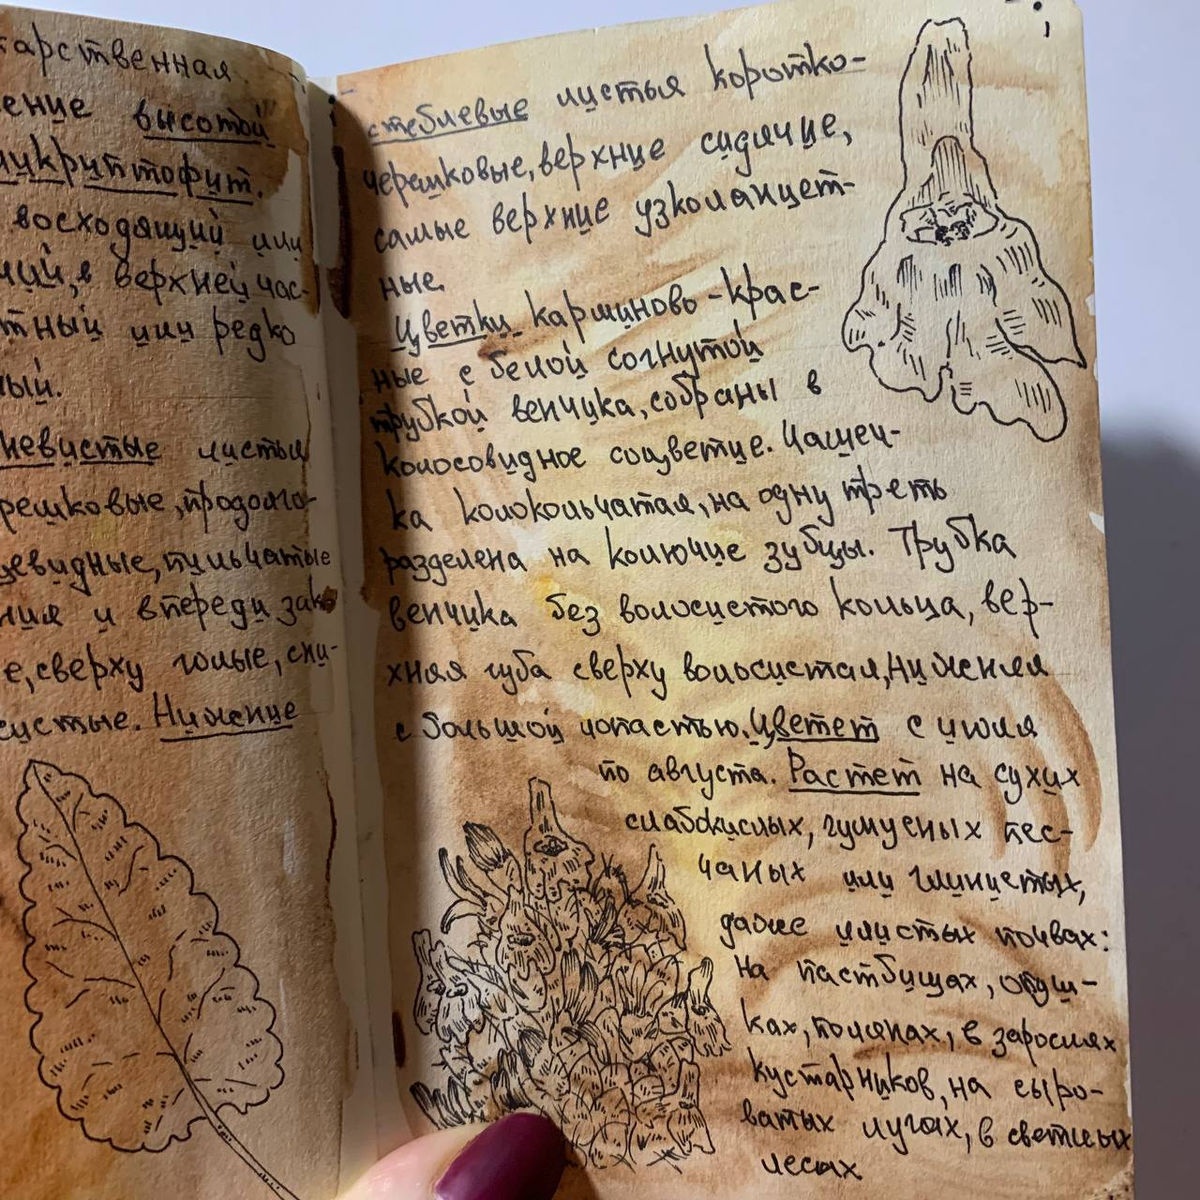 карственная
ение высотой
микриптофит.
восходящий или
чий, в верхней час-
тный или редко
ный.
невистые листья
решковые, продолго-
цевидные, пильчатые
ния и впереди зак
е, сверху голые, сни-
систые. Нижние
стеблевые листья коротко-
черешковые, верхние сидячие,
самые верхние узколанцет-
ные.
Цветки карминово-крас-
ные с белой согнутой
трубкой венчика, собраны в
колосовидное соцветие. Чашеч-
ка колокольчатая, на одну треть
разделена на колючие зубцы. Трубка
венчика без волосистого кольца, вер-
хняя губа сверху волосистая, нижняя
с большой лопастью. Цветет с июля
по августа. Растет на сухих
слабокислых, гумусных пес-
чаных или глинистых,
даже илистых почвах:
на пастбищах, опуш-
ках, полянах, в зарослях
кустарников, на сыро-
ватых лугах, в светлых
лесах